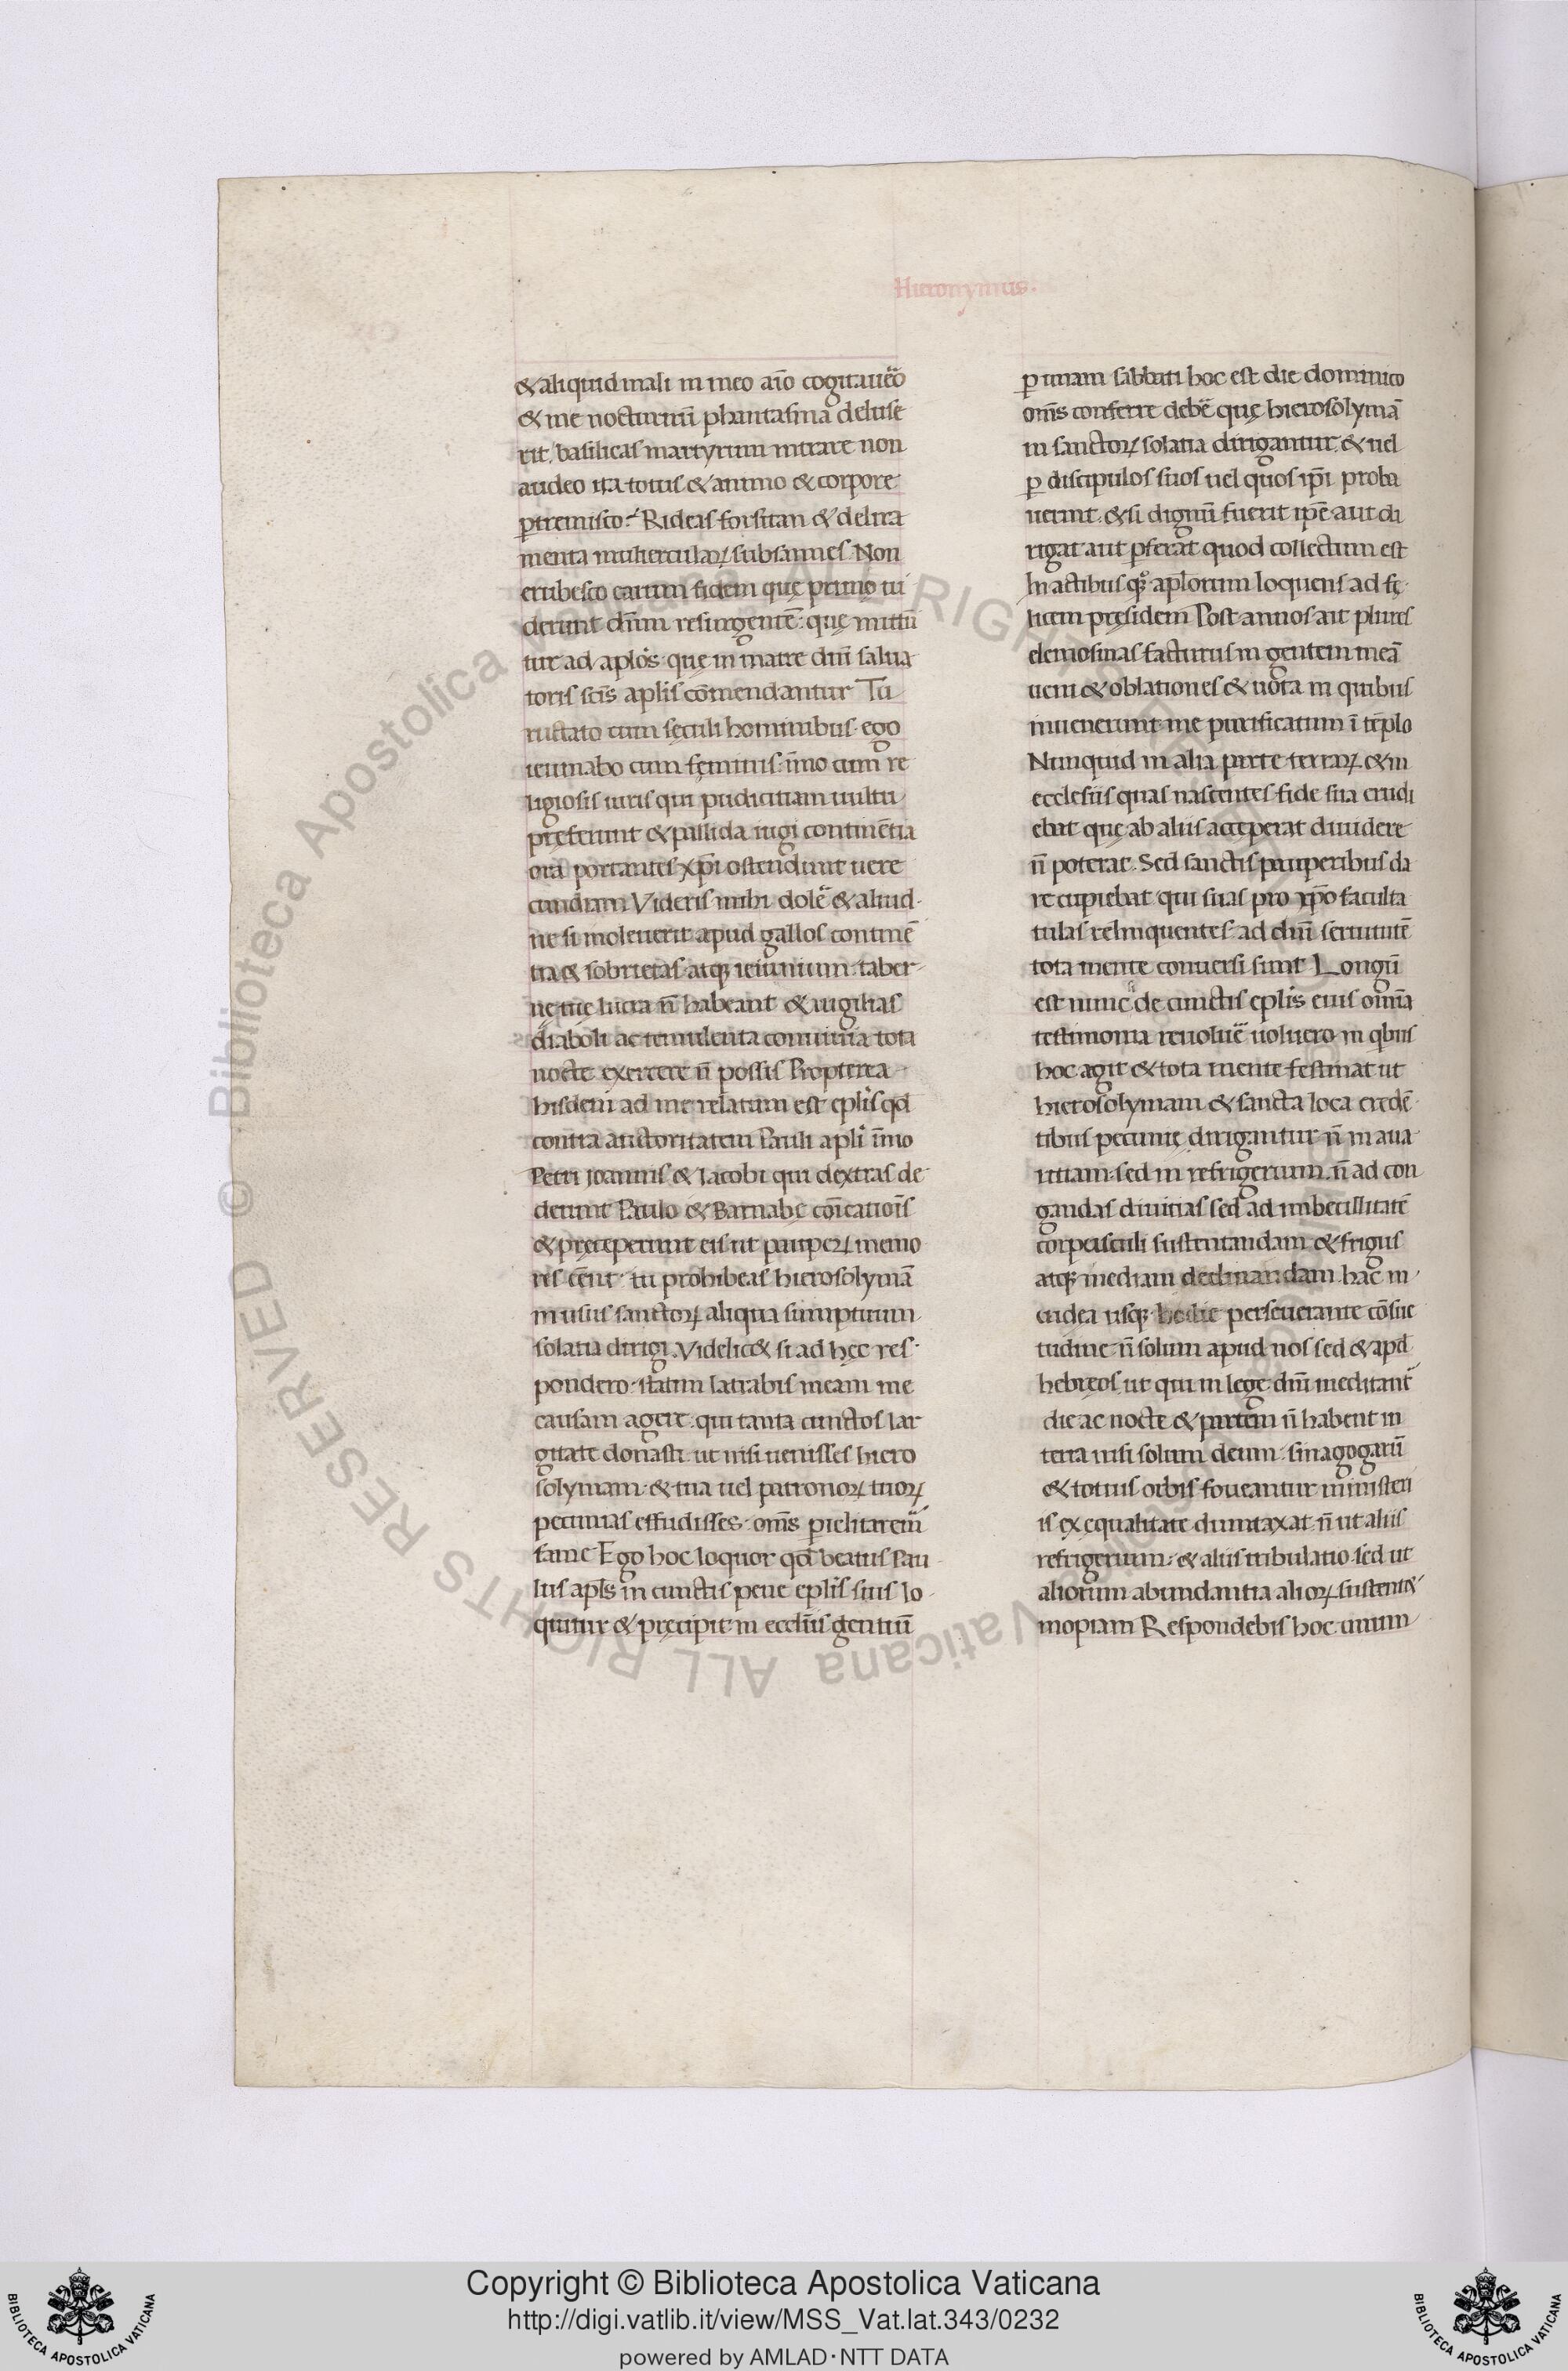 Hieronymus.
& aliquid mali in meo aīo cogitauēo
& me nocturnū phantasma deluse
rit, basilicas martyrum intrare non
audeo ita totus & animo & corpore
ꝑtremisco. Rideas forsitan & delira
menta mulierculaꝝ subsannes. Non
erubesco earum fidem quę primo ui
derunt dn̄m resurgentē: quę mittū
tur ad aplōs: quę in matre dn̄i salua
toris scīs aplīs cōmendantur Tu
ructato cum sęculi hominibus. ego
ieiunabo cum fęminis: īmo cum re
ligiosis uiris qui pudicitiam uultu
pręferunt & pallida iugi continētia
ora portantes xp̄i ostendunt uere
cundiam Videris mihi dolē & aliud
ne si inoleuerit apud gallos continē
tia & sobrietas atqꝫ ieiunium. taber
nę tuę lucra n̄ habeant & uigilias
diaboli ac temulenta conuiuia tota
nocte exercere n̄ possis Propterea
hisdem ad me relatum est eplīs qd̄
contra auctoritatem Pauli aplī īmo
Petri joannis & Iacobi qui dextras de
derunt Paulo & Barnabę cōicatiōis
& pręceperunt eis ut paupeꝝ memo
res eēnt. tu prohibeas hierosolymā
in usus sanctoꝝ aliqua sumptuum
solatia dirigi. Videlic& si ad hęc res
pondero. statim latrabis meam me
causam agere: qui tanta cunctos lar
gitate donasti. ut nisi uenisses hiero
solymam. & tua uel patronoꝝ tuoꝝ
pecunias effudisses. om̄s ꝑielitarem̄
fame Ego hoc loquor qd̄ beatus Pau
lus apl̄s in cunctis pene eplīs suis lo
quitur & pręcipit in eccl̄iis gentiū
ꝑ unam sabbati hoc est die dominico
om̄s conferre debē quę hierosolymā
in sanctoꝝ solatia dirigantur. & uel
ꝑ discipulos suos uel quos ip̄i proba
uerint. & si dignū fuerit ip̄e aut di
rigat aut ꝑferat quod collectum est
In actibus qꝫ aplōrum loquens ad fę
licem pręsidem Post annos ait plures
elemosinas facturus in gentem meā
ueni & oblationes & uota in quibus
inuenerunt me purificatum ī tēplo
Nunquid in alia parte terraꝝ & in
ecclesiis quas nascentes fide sua erudi
ebat quę ab aliis acceperat diuidere
n̄ poterat. Sed sanctis pauperibus da
re cupiebat qui suas pro xp̄o faculta
tulas relinquentes. ad dn̄i seruitutē
tota mente conuersi sunt Longū
est nunc de cunctis eplīs eius omīa
testimonia reuoluē uoluero in qbus
hoc agit & tota mente festinat ut
hierosolymam & sancta loca credē
tibus pecunię dirigantur. n̄ in aua
ritiam. sed in refrigerium. n̄ ad con
gandas diuitias sed ad imbecillitatē
corpusculi sustentandam & frigus
atqꝫ inediam declinandam. hac in
iudea usqꝫ hodie perseuerante cōsue
tudine n̄ solum apud nos sed & apd̄
hebręos. ut qui in lege dn̄i meditant̄
die ac nocte & partem n̄ habent in
terra nisi solum deum. sinagogarū
& totius orbis foueantur ministeri
is ex equalitate dumtaxat. n̄ ut aliis
refrigerium. & aliis tribulatio. sed ut
aliorum abundantia alioꝝ sustent&
inopiam Respondebis hoc unum
© Biblioteca Apostolica Vaticana ALL RIGHTS RESERVED © Biblioteca Apostolica Vaticana ALL RIGHTS RESERVED
Copyright © Biblioteca Apostolica Vaticana
http://digi.vatlib.it/view/MSS_Vat.lat.343/0232
powered by AMLAD・NTT DATA
BIBLIOTECA APOSTOLICA VATICANA
BIBLIOTECA APOSTOLICA VATICANA